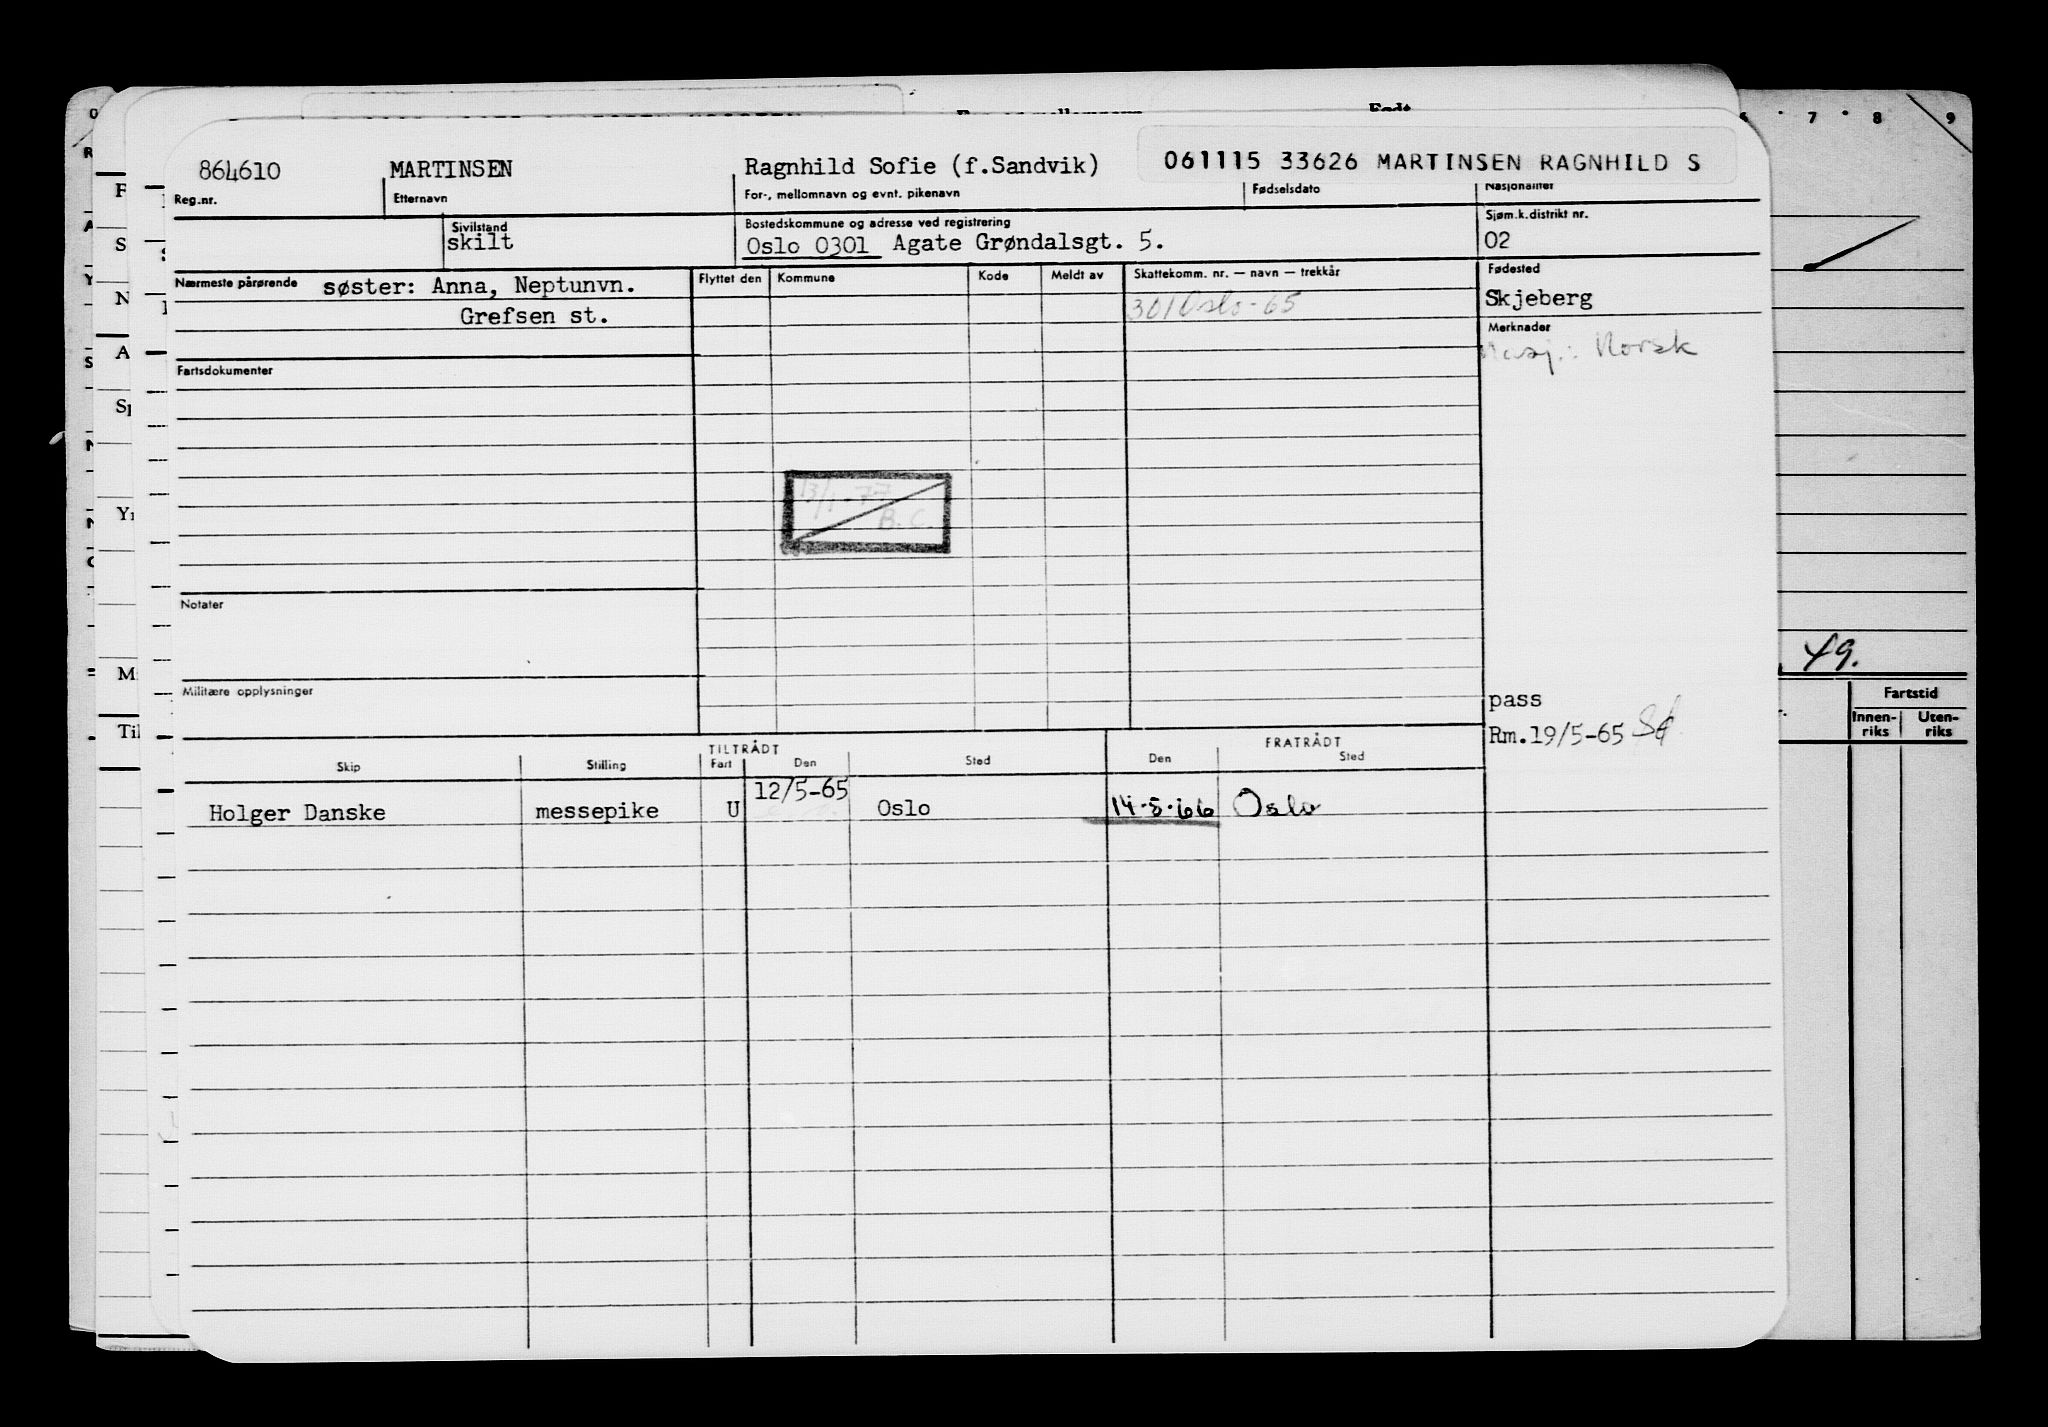 Født
7 8 9
864610 MARTINSEN Ragnhild Sofie (f.Sandvik) 061115 33626 MARTINSEN RAGNHILD S
Reg.nr. Etternavn For-, mellomnavn og evnt. pikenavn Fødselsdato Nasjonalitet
Sivilstand Bostedskommune og adresse ved registrering Sjøm.k.distrikt nr.
skilt Oslo 0301 Agate Grøndalsgt. 5. 02
Nærmeste pårørende søster: Anna, Neptunvn. Flyttet den Kommune Kode Meldt av Skattekomm. nr. — navn — trekkår Fødested
Grefsen st. 301 Oslo-65 Skjeberg
Merknader
Nasj.: Norsk
Fartsdokumenter
13/1-77
B.C.
Notater
49.
Militære opplysninger
pass
Rm.19/5-65
Fartstid
Innen-riks Uten-riks
TILTRÅDT FRATRÅDT
Skip Stilling Fart Den Sted Den Sted
Holger Danske messepike U 12/5-65 Oslo 14.5.66 Oslo